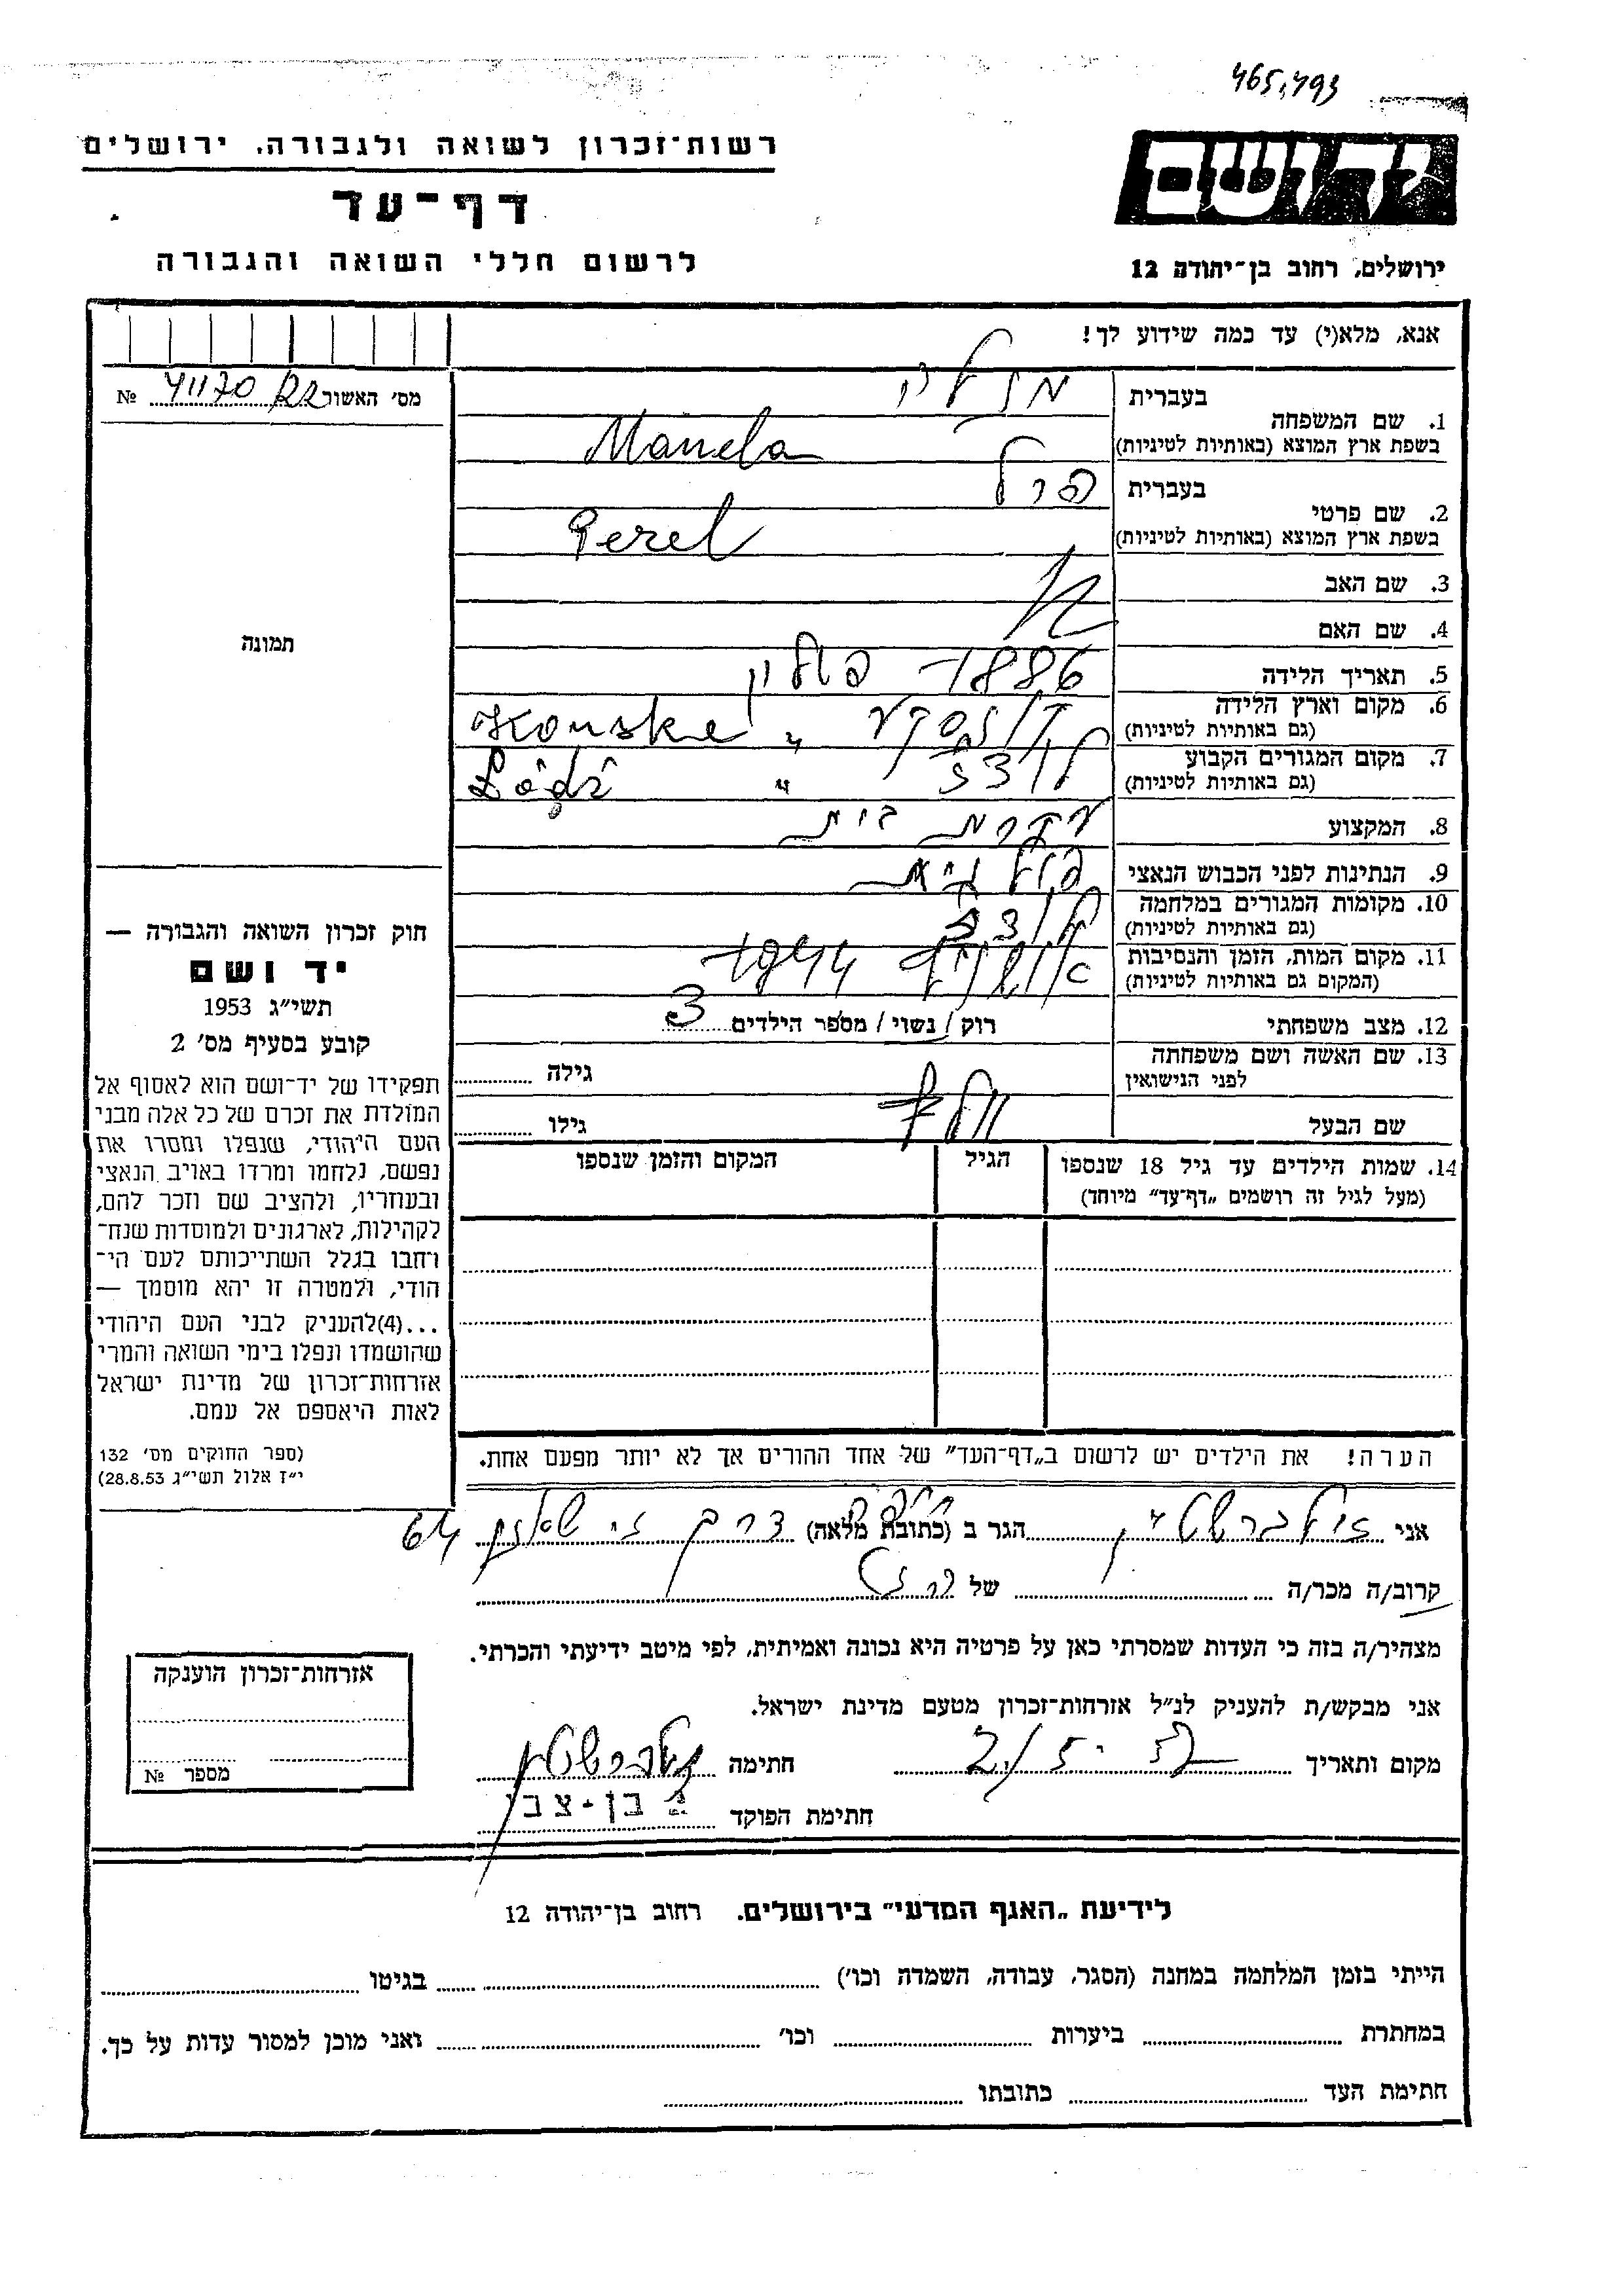 465,493
רשות־זכרון לשואה ולגבורה. ירושלים
דף־עד
לרשום חללי השואה והגבורה
ידושם
ירושלים, רחוב בן־יהודה 12
אנא, מלא(י) עד כמה שידוע לך!
מס׳ האשור 41170 №
1. שם המשפחה
בעברית
בשפת ארץ המוצא (באותיות לטיניות) Manela
2. שם פרטי
בעברית פרל
בשפת ארץ המוצא (באותיות לטיניות) Perel
3. שם האב
4. שם האם
5. תאריך הלידה 1886 פולין
6. מקום וארץ הלידה
(גם באותיות לטיניות) קונסקע " Konske
7. מקום המגורים הקבוע
(גם באותיות לטיניות) לודז " Łódź
8. המקצוע עקרת בית
9. הנתינות לפני הכבוש הנאצי פולנית
10. מקומות המגורים במלחמה
(גם באותיות לטיניות) לודז
11. מקום המות, הזמן והנסיבות
(המקום גם באותיות לטיניות) אושויץ 1944
12. מצב משפחתי רוק / נשוי / מספר הילדים 3
13. שם האשה ושם משפחתה
לפני הנישואין
גילה
שם הבעל
גילו
14. שמות הילדים עד גיל 18 שנספו
(מעל לגיל זה רושמים „דף־עד" מיוחד)
הגיל
המקום והזמן שנספו
הערה! את הילדים יש לרשום ב„דף־העד" של אחד ההורים אך לא יותר מפעם אחת.
תמונה
חוק זכרון השואה והגבורה —
יד ושם
תשי״ג 1953
קובע בסעיף מס׳ 2
תפקידו של יד־ושם הוא לאסוף אל
המולדת את זכרם של כל אלה מבני
העם היהודי, שנפלו ומסרו את
נפשם, נלחמו ומרדו באויב הנאצי
ובעוזריו, ולהציב שם וזכר להם,
לקהילות, לארגונים ולמוסדות שנח־
רחבו בגלל השתייכותם לעם הי־
הודי, ולמטרה זו יהא מוסמך —
...(4)להעניק לבני העם היהודי
שהושמדו ונפלו בימי השואה והמרי
אזרחות־זכרון של מדינת ישראל
לאות היאספם אל עמם.
(ספר החוקים מס׳ 132
י״ז אלול תשי״ג 28.8.53)
אני זילברשטיין הגר ב (כתובת מלאה) דרך 64
קרוב/ה מכר/ה של
מצהיר/ה בזה כי העדות שמסרתי כאן על פרטיה היא נכונה ואמיתית, לפי מיטב ידיעתי והכרתי.
אני מבקש/ת להעניק לנ״ל אזרחות־זכרון מטעם מדינת ישראל.
מקום ותאריך חתימה זילברשטיין
חתימת הפוקד בן-צבי
אזרחות־זכרון הוענקה
מספר №
לידיעת „האגף המדעי" בירושלים. רחוב בן־יהודה 12
הייתי בזמן המלחמה במחנה (הסגר, עבודה, השמדה וכו׳) בגיטו
במחתרת ביערות וכו׳ ואני מוכן למסור עדות על כך.
חתימת העד כתובתו